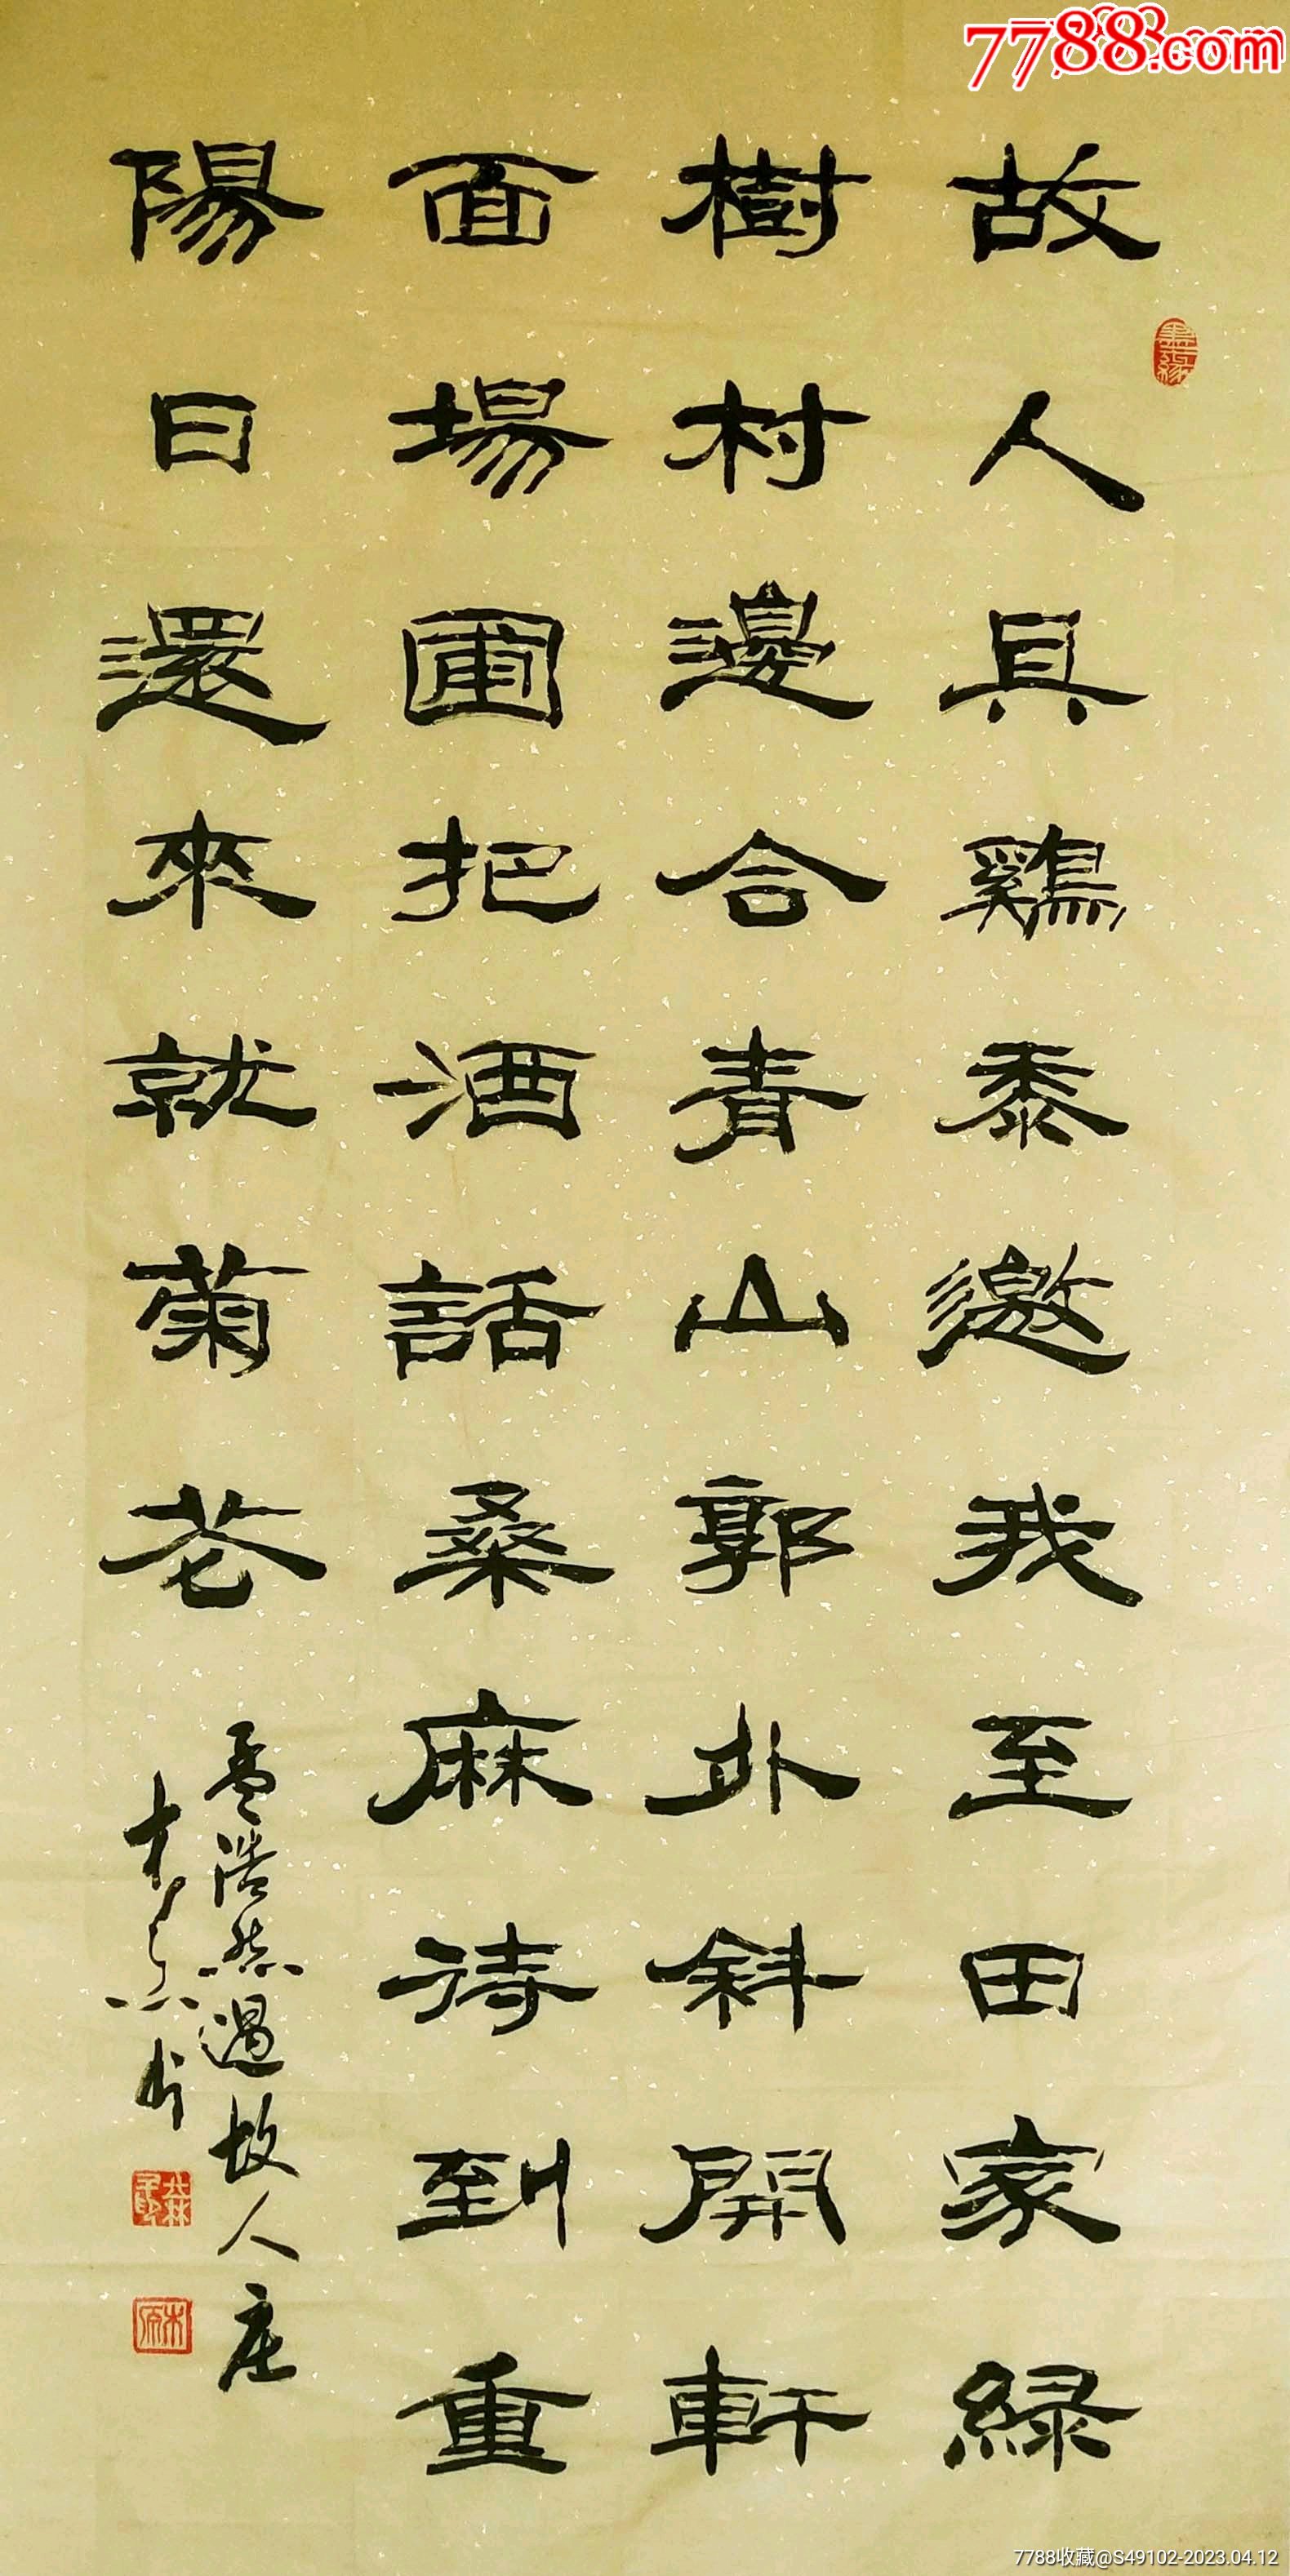 7788.com
故人具鷄黍邀我至田家綠
樹村邊合青山郭外斜開軒
面場圃把酒話桑麻待到重
陽日還來就菊花
孟浩然過故人庄
7788收藏@S49102-2023.04.12